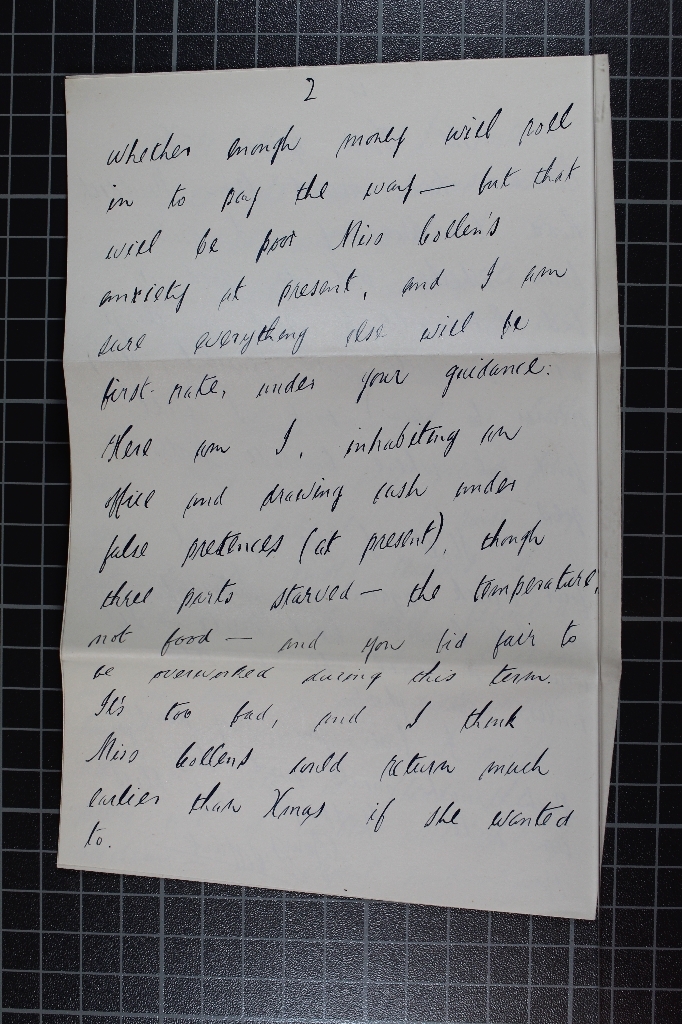 2
whether enough money will roll
in to pay the way — but that
will be poor Miss Collen's
anxiety at present, and I am
sure everything else will be
first-rate, under your guidance.
Here am I, inhabiting an
office and drawing cash under
false pretences (at present), though
three parts starved — the temperature,
not food — and you bid fair to
be overworked during this term.
It's too bad, and I think
Miss Collens could return much
earlier than Xmas if she wanted
to.